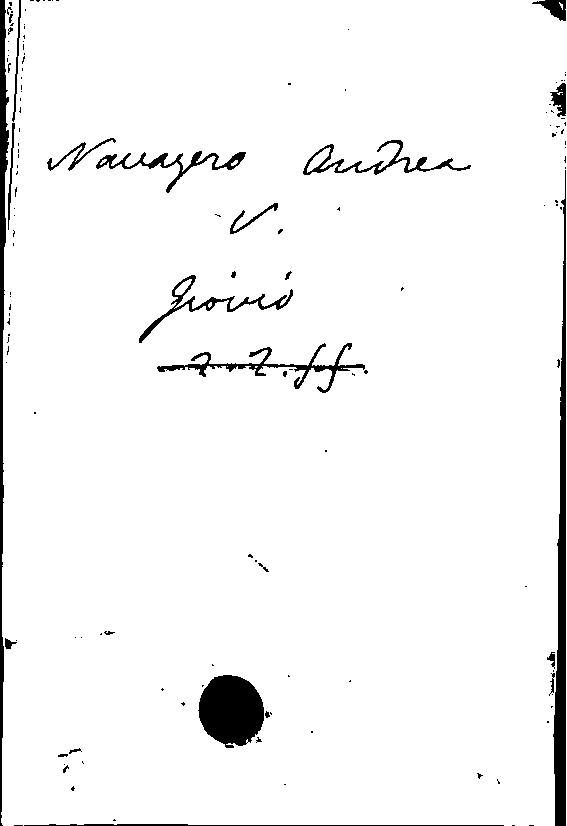 Navagero Andrea
V.
Giovio